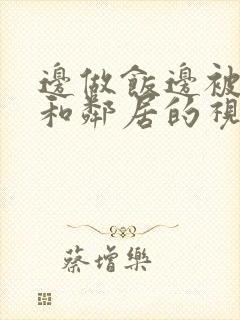 邊做飯邊被
和鄰居的視
蔡增樂